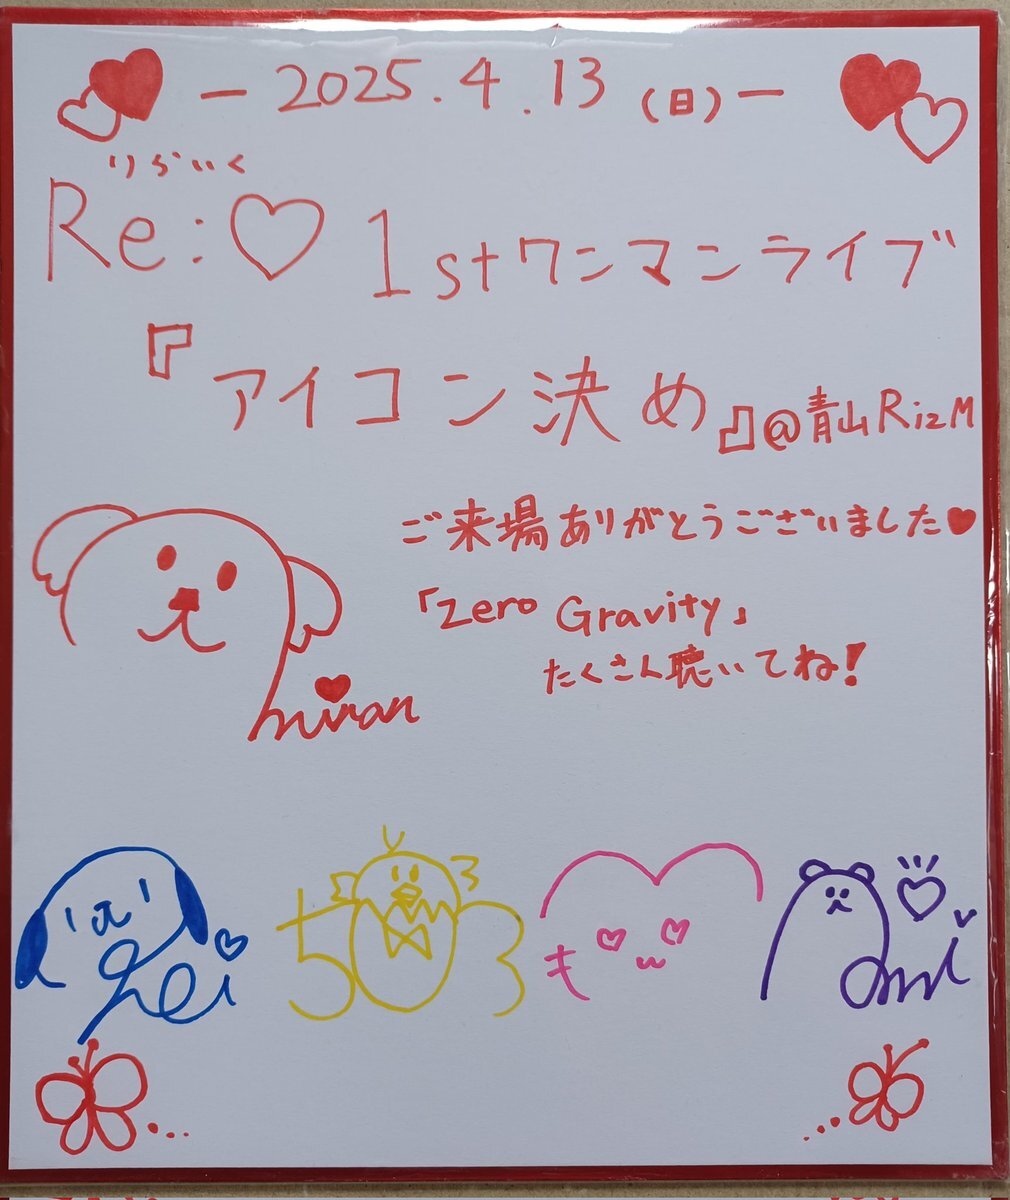 - 2025.4.13(日)-
りらいく
Re:♡ 1stワンマンライブ
『アイコン決め』@青山RizM
ご来場ありがとうございました♥
「Zero Gravity」
たくさん聴いてね!
miran
Rei
503
も
Ami